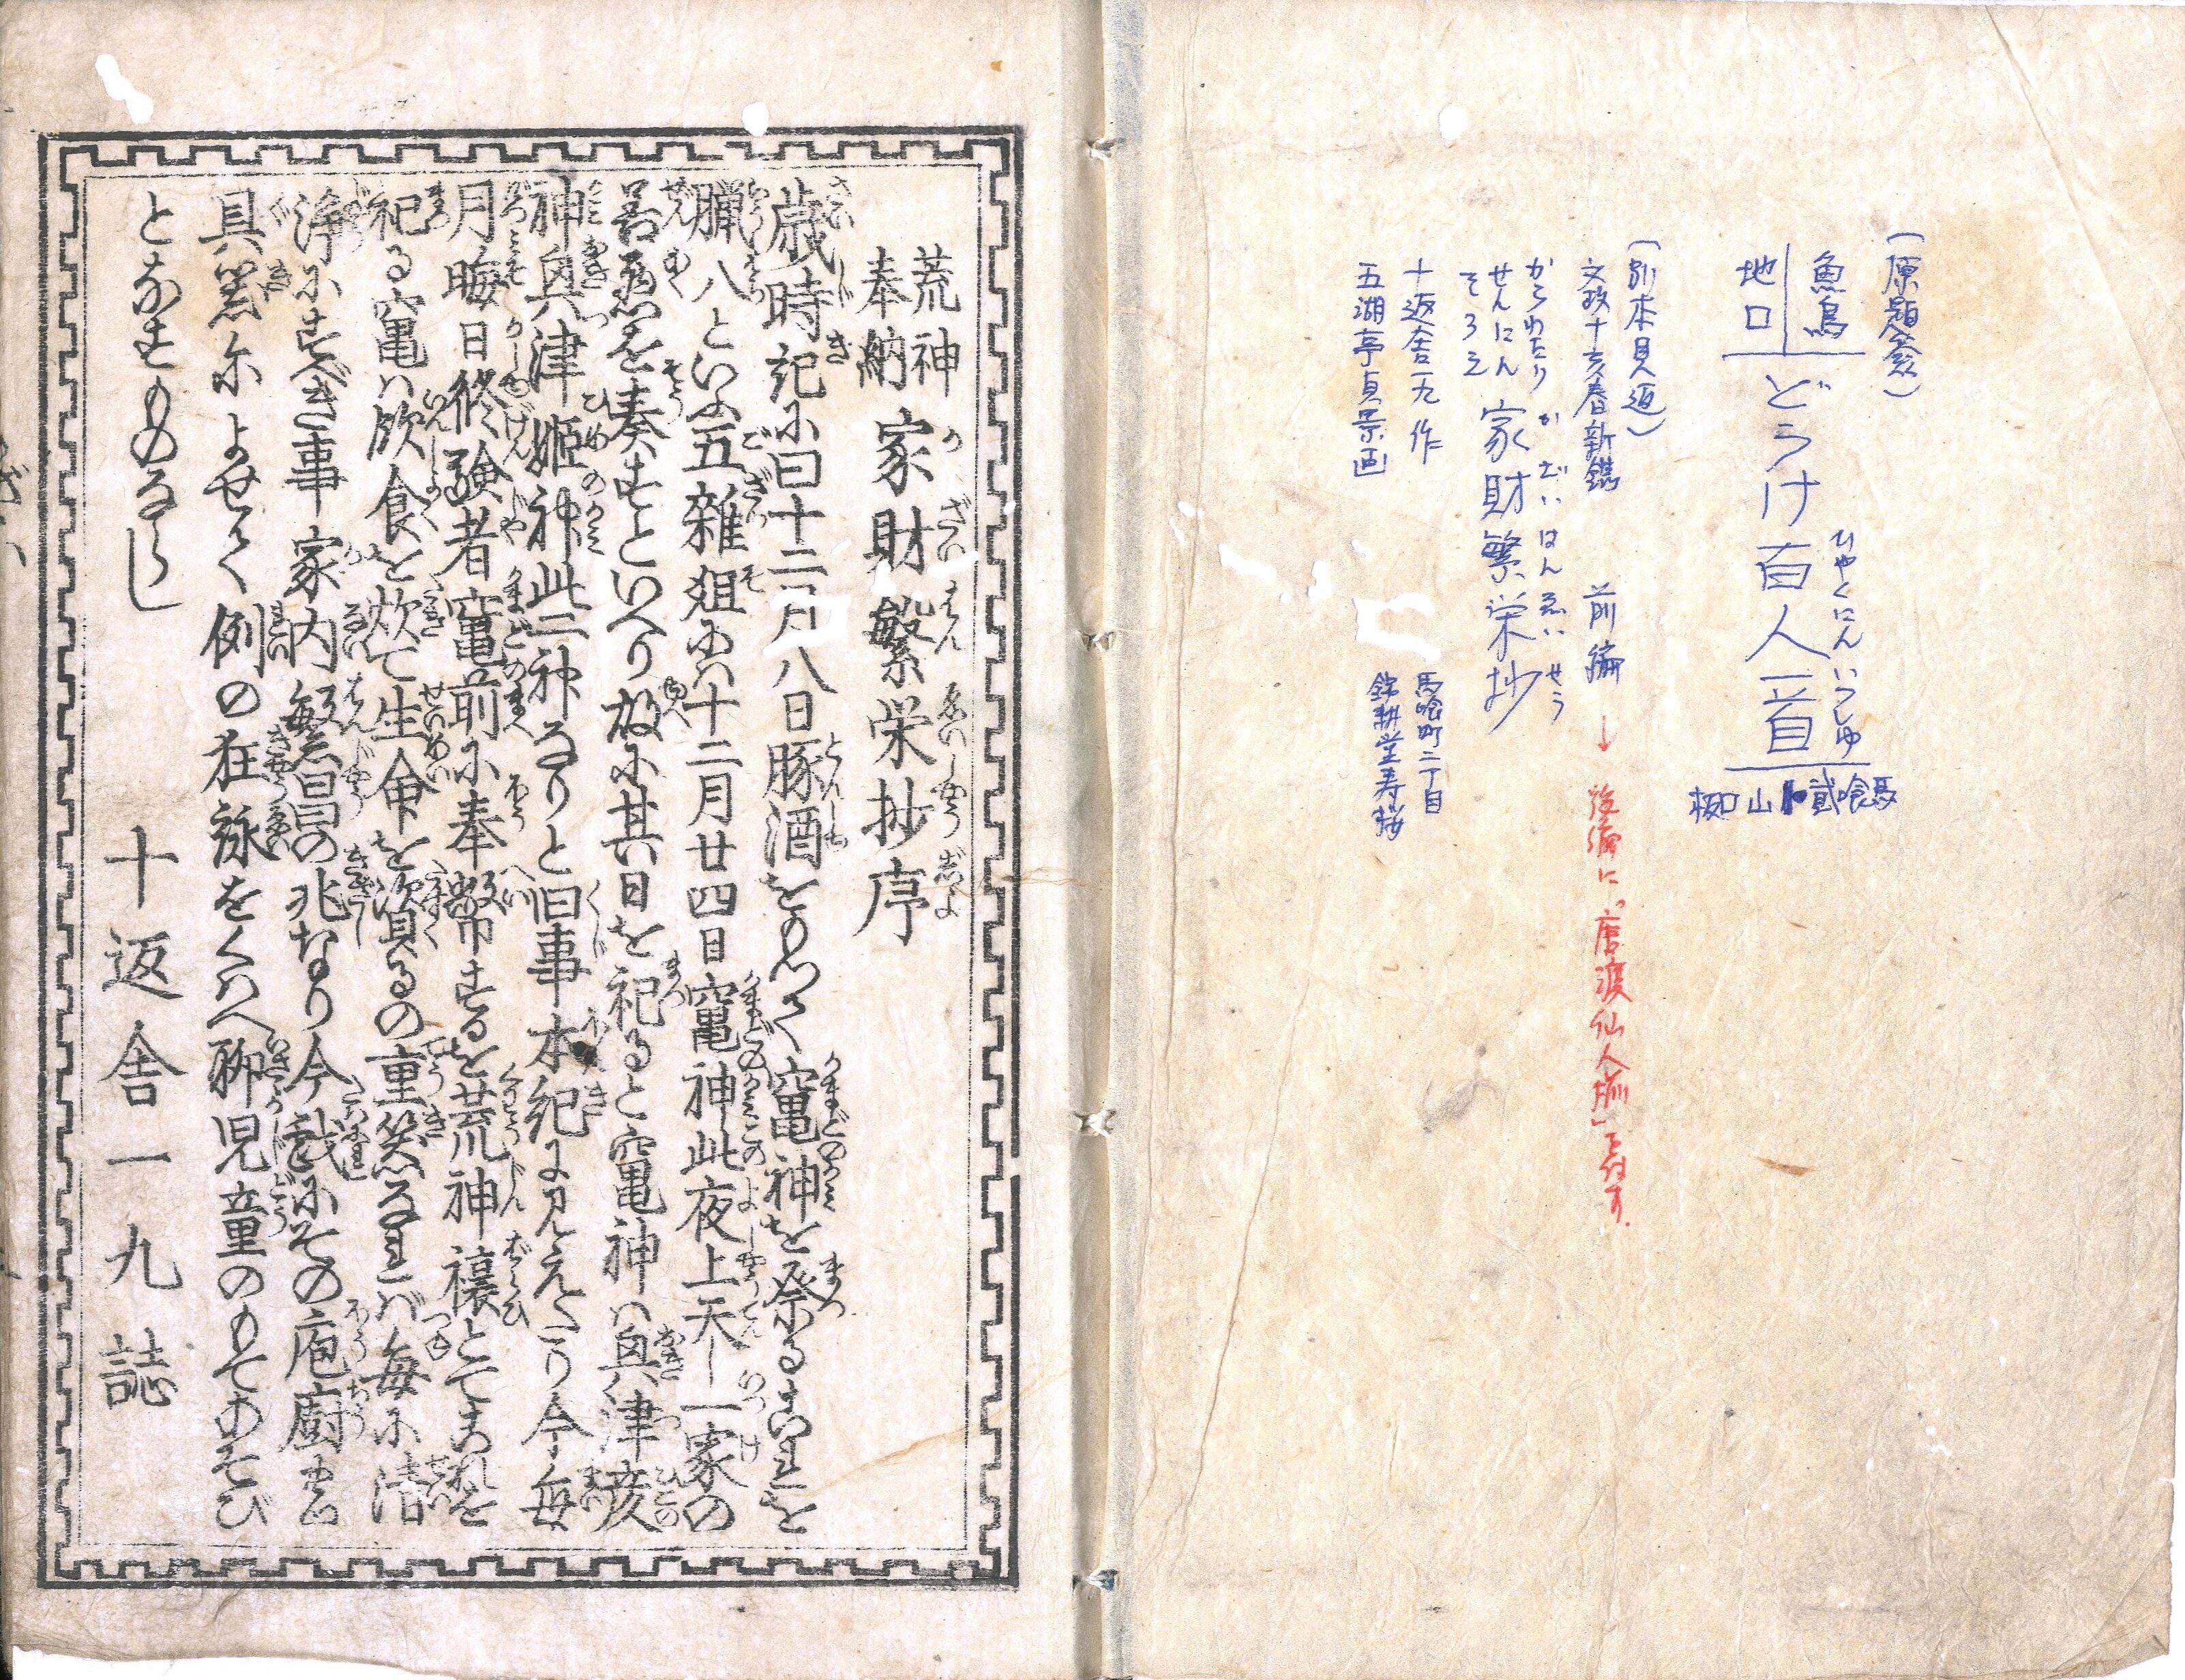 (原題簽)
魚鳥
地口
どうけ百人一首
ひやくにんいつしゆ
(別本見返)
文政十亥春新鐫 前編
→後編に「唐渡仙人揃」を付す.
からわたり
せんにん
そろえ
かざいはんゑいせう
家財繁栄抄
十返舎一九作
五湖亭貞景画
馬喰町二丁目
錦耕堂寿桜
荒神
奉納
家財繁栄抄序
歳時記に曰十二月八日豚酒をもつて竈神を祭るこれを
臘八といふ五雑爼には十二月廿四日竈神此夜上天し一家の
善悪を奏すといへり故に其日を祀ると竈神は奥津彦
神奥津姫神此二神なりと旧事本紀に見えたり今毎
月晦日修験者竈前に奉幣するを荒神禳とてこれを
祀る竈は飲食を炊て生命を資るの重器なれば毎に清
浄にすべき事家内繁昌の兆なり今戯にその庖厨の
具器によせて例の狂詠をくはへ聊児童のもてあそび
となすものならし
十返舎一九誌